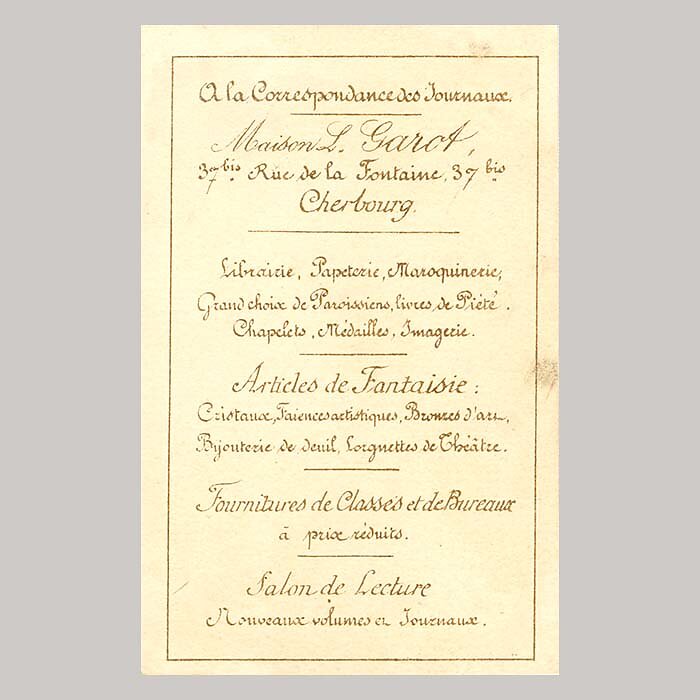 A la Correspondance des Journaux.
Maison L. Garot,
37 bis Rue de la Fontaine, 37 bis
Cherbourg.
Librairie, Papeterie, Maroquinerie,
Grand choix de Paroissiens, livres de Piété.
Chapelets, Médailles, Imagerie.
Articles de Fantaisie :
Cristaux, Faïences artistiques, Bronzes d'art,
Bijouterie de deuil, Lorgnettes de Théâtre.
Fournitures de Classes et de Bureaux
à prix réduits.
Salon de Lecture
Nouveaux volumes et Journaux.